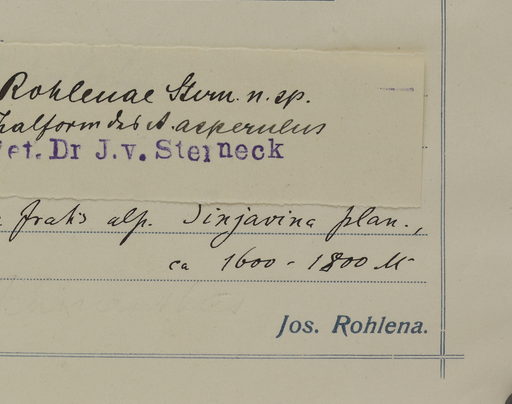 Rohlenae Stern. n. sp.
des A. asperulus
et. Dr J. v. Sterneck
pratis alp. Sinjavina plan.,
ca 1600 - 1800 M
Jos. Rohlena.